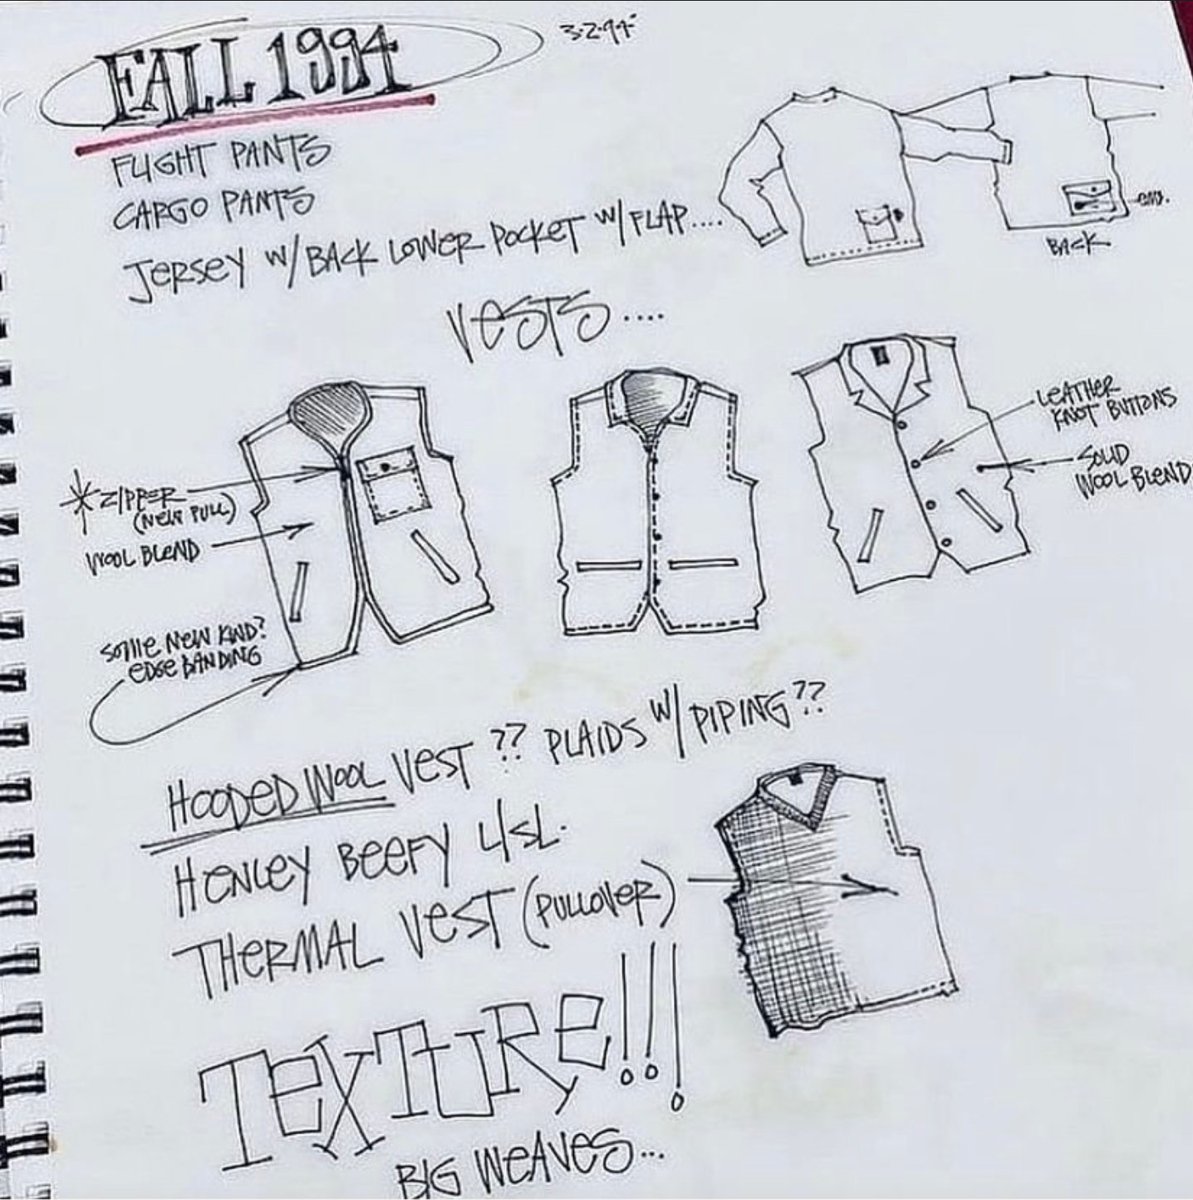 FALL 1994
3-2-94
FLIGHT PANTS
CARGO PANTS
JERSEY W/BACK LOWER POCKET W/FLAP....
BACK
VESTS....
LEATHER
KNOT BUTTONS
SOLID
WOOL BLEND
ZIPPER
(NEW PULL)
WOOL BLEND
SOME NEW KIND?
EDGE BANDING
HOODED WOOL VEST ?? PLAIDS W/PIPING??
HENLEY BEEFY 4SL.
THERMAL VEST (PULLOVER)
TEXTURE!!!
BIG WEAVES...